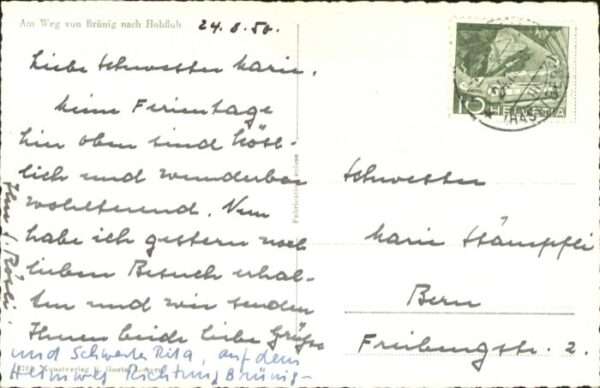 Am Weg von Brünig nach Hohfluh
24.8.50.
Liebe Schwester Marie,
meine Ferientage
hier oben sind köst-
lich und wunderbar
wohltuend. Nun
habe ich gestern noch
lieben Besuch erhal-
ten und wir senden
Ihnen beide liebe Grüsse
und Schwester Rita, auf dem
Heimweg Richtung Brünig-
Ihre
Rösli
10
HELVETIA
HAS
Schwester
Marie Stämpfli
Bern
Freiburgstr. 2.